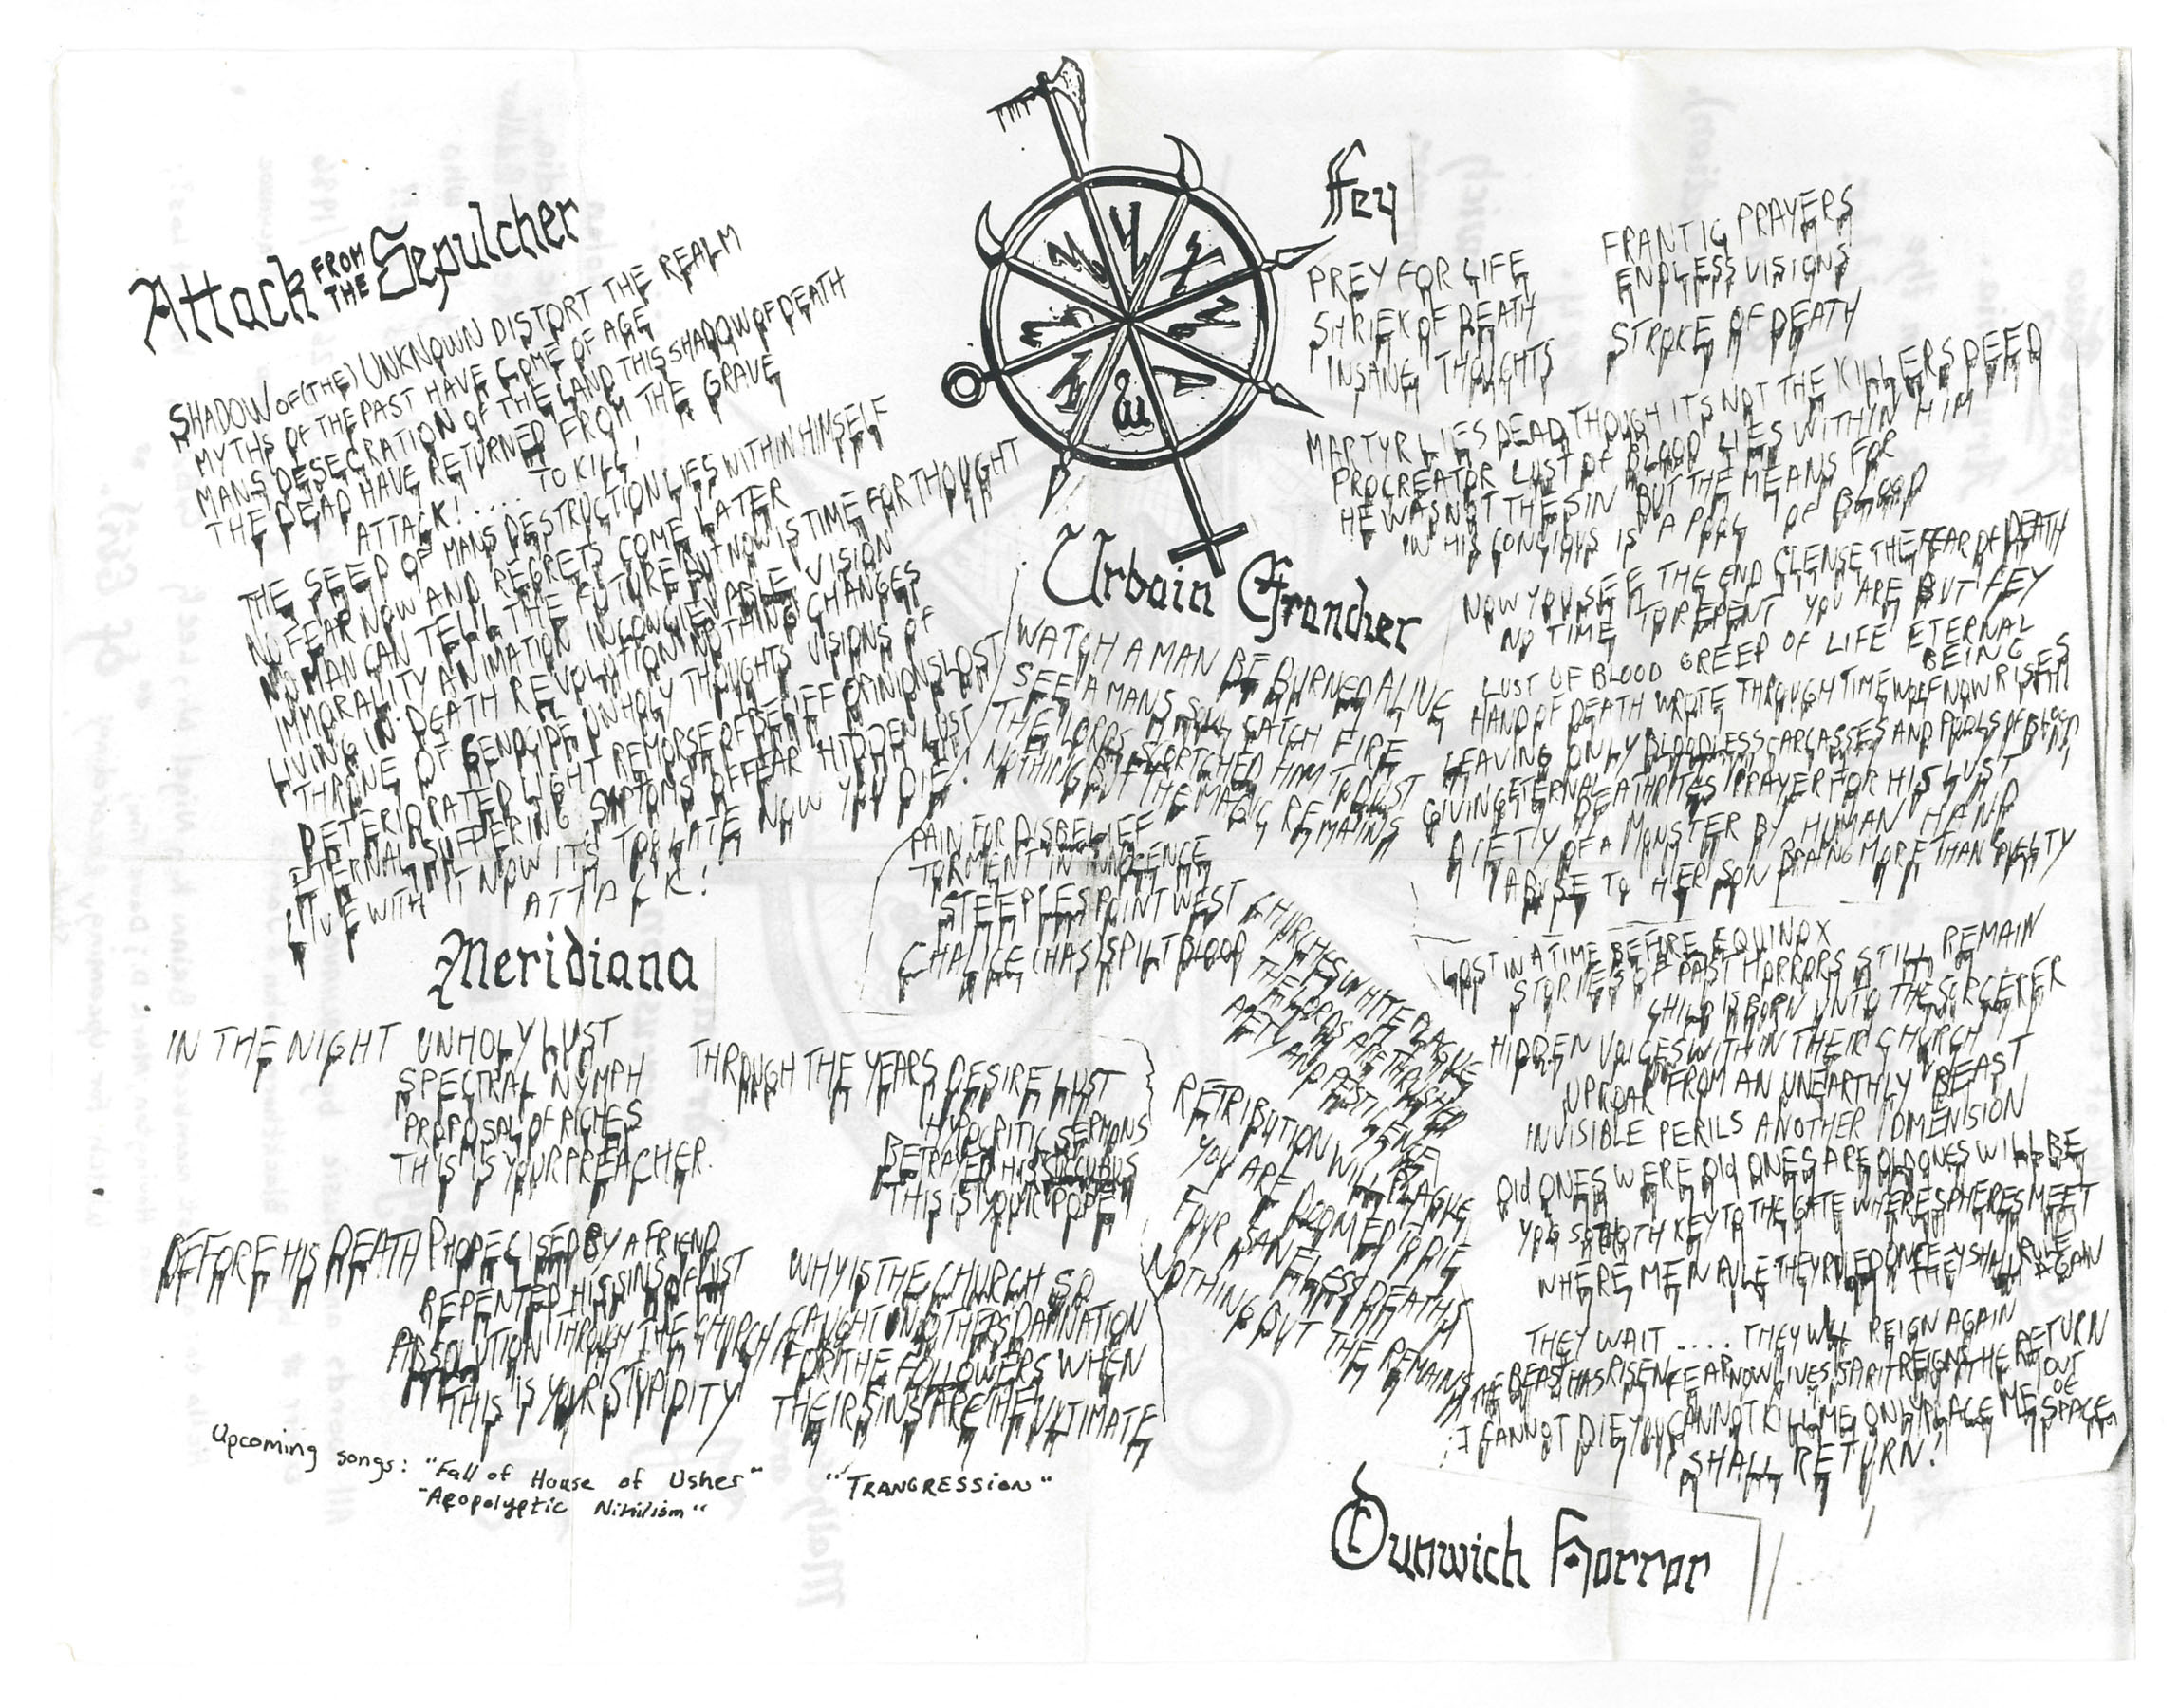 Attack FROM THE Sepulcher
SHADOW OF (THE) UNKNOWN DISTORT THE REALM
MYTHS OF THE PAST HAVE COME OF AGE
MANS DESECRATION OF THE LAND THIS SHADOW OF DEATH
THE DEAD HAVE RETURNED FROM THE GRAVE
ATTACK!.... TO KILL!
THE SEED OF MANS DESTRUCTION LIES WITHIN HIMSELF
NO FEAR NOW AND REGRETS COME LATER
NO MAN CAN TELL THE FUTURE BUT NOW IS TIME FOR THOUGHT
IMMORALITY ANIMATION INCONCIEVABLE VISION
LIVING IN DEATH REVOLUTION NOTHING CHANGES
THRONE OF GENOCIDE UNHOLY THOUGHTS VISIONS OF
DETERIORATED LIGHT REMORSE OF BELIEF OPINIONS LOST
ETERNAL SUFFERING SMPTOMS OF FEAR HIDDEN LUST
LIVE WITH IT NOW ITS TOO LATE NOW YOU DIE!
ATTACK!
Meridiana
IN THE NIGHT UNHOLY LUST
SPECTRAL NYMPH
PROPOSAL OF RICHES
THIS IS YOUR PREACHER.
THROUGH THE YEARS DESIRE LUST
HYPOCRITIC SERMONS
BETRAYED HIS SUCCUBUS
THIS IS YOUR POPE
BEFORE HIS DEATH PHOPECISED BY A FRIEND
REPENTED HIS SINS OF LUST
ABSOLUTION THROUGH THE CHURCH
THIS IS YOUR STUPIDITY
WHY IS THE CHURCH SO
CAUGHT ON OTHERS DAMNATION
FOR THE FOLLOWERS WHEN
THEIR SINS ARE THE ULTIMATE
Upcoming songs: "Fall of House of Usher" "TRANGRESSION"
"Apopolyptic Nihilism"
Urbain Grandier
WATCH A MAN BE BURNED ALIVE
SEE A MANS SOUL CATCH FIRE
THE LORDS SCORTCHED HIM TO DUST
NOTHING BUT THE MAGIC REMAINS
PAIN FOR DISBELIEF
TORMENT IN INNOCENCE
STEEPLES POINT WEST
CHALICE (HAS) SPILT BLOOD
CHURCHES WHITE PLAGUE
THE LORDS ARE THRUSHED
PIETY AND PESTILENCE
RETRIBUTION WILL PLAGUE
YOU ARE DOOMED TO DIE
FOUR SANELESS DEATHS
NOTHING BUT THE REMAINS
Fey
PREY FOR LIFE
SHRIEK OF DEATH
INSANE THOUGHTS
FRANTIC PRAYERS
ENDLESS VISIONS
STROKE OF DEATH
MARTYR LIES DEAD THOUGH ITS NOT THE KILLERS DEED
PROCREATOR LUST OF BLOOD LIES WITHIN HIM
HE WAS NOT THE SIN BUT THE MEANS FOR
IN HIS CONCIOUS IS A POOL OF BLOOD
NOW YOU SEE THE END CLENSE THE FEAR OF DEATH
NO TIME TO REPENT YOU ARE BUT FEY
LUST OF BLOOD GREED OF LIFE ETERNAL BEING
HAND OF DEATH WROTE THROUGH TIME WOLF NOW RISES
LEAVING ONLY BLOODLESS CARCASSES AND POOLS OF BLOOD
GIVING ETERNAL DEATHRITES PRAYER FOR HIS LUST
DIETY OF A MONSTER BY HUMAN HAND
ABUSE TO HER SON BRAING MORE THAN CRUELTY
LOST IN A TIME BEFORE EQUINOX
STORIES OF PAST HORRORS STILL REMAIN
CHILD IS BORN UNTO THE SORCERER
HIDDEN VOICES WITHIN THEIR CHURCH
UPROAR FROM AN UNEARTHLY BEAST
INVISIBLE PERILS ANOTHER DIMENISION
Old ONES WERE Old ONES ARE OLD ONES WILL BE
YOG SOTHOTH KEY TO THE GATE WHERE SPHERES MEET
WHERE MEN RULE THEY RULED ONCE THEY SHALL RULE AGAIN
THEY WAIT .... THEY WILL REIGN AGAIN
THE BEAST HAS RISEN FEAR NOW LIVES SPIRIT REIGNS THE RETURN
I CANNOT DIE YOU CANNOT KILL ME ONLY PLACE ME OUT OF SPACE
SHALL RETURN!
Dunwich Horror